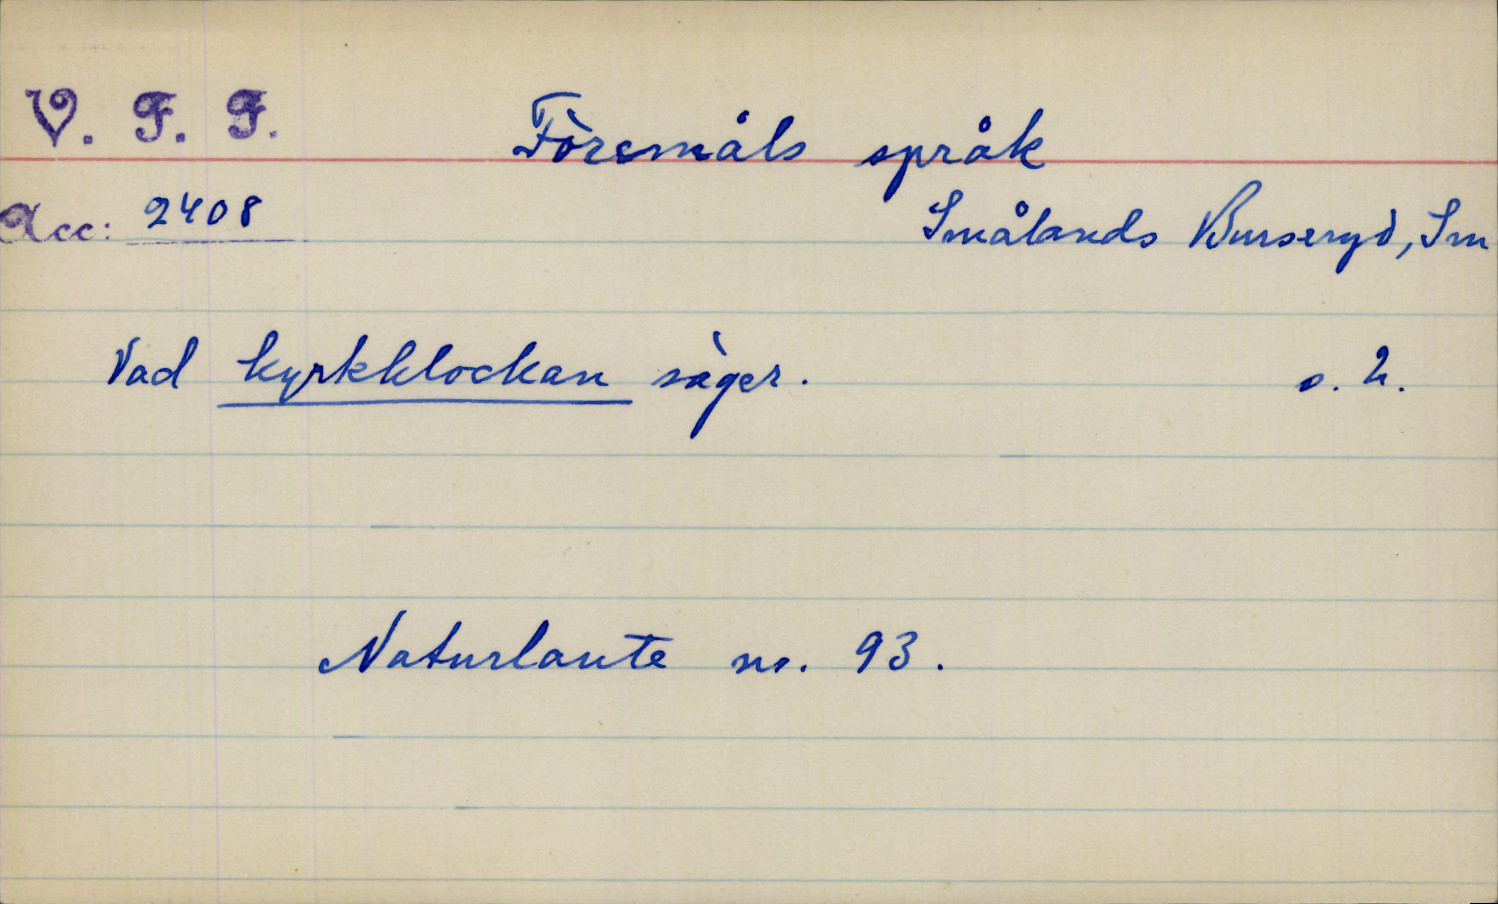 V. F. F.
Föremåls språk
Acc: 2408
Smålands Burseryd, Sm
Vad kyrkklockan säger. s. 2.
Naturlaute nr. 93.